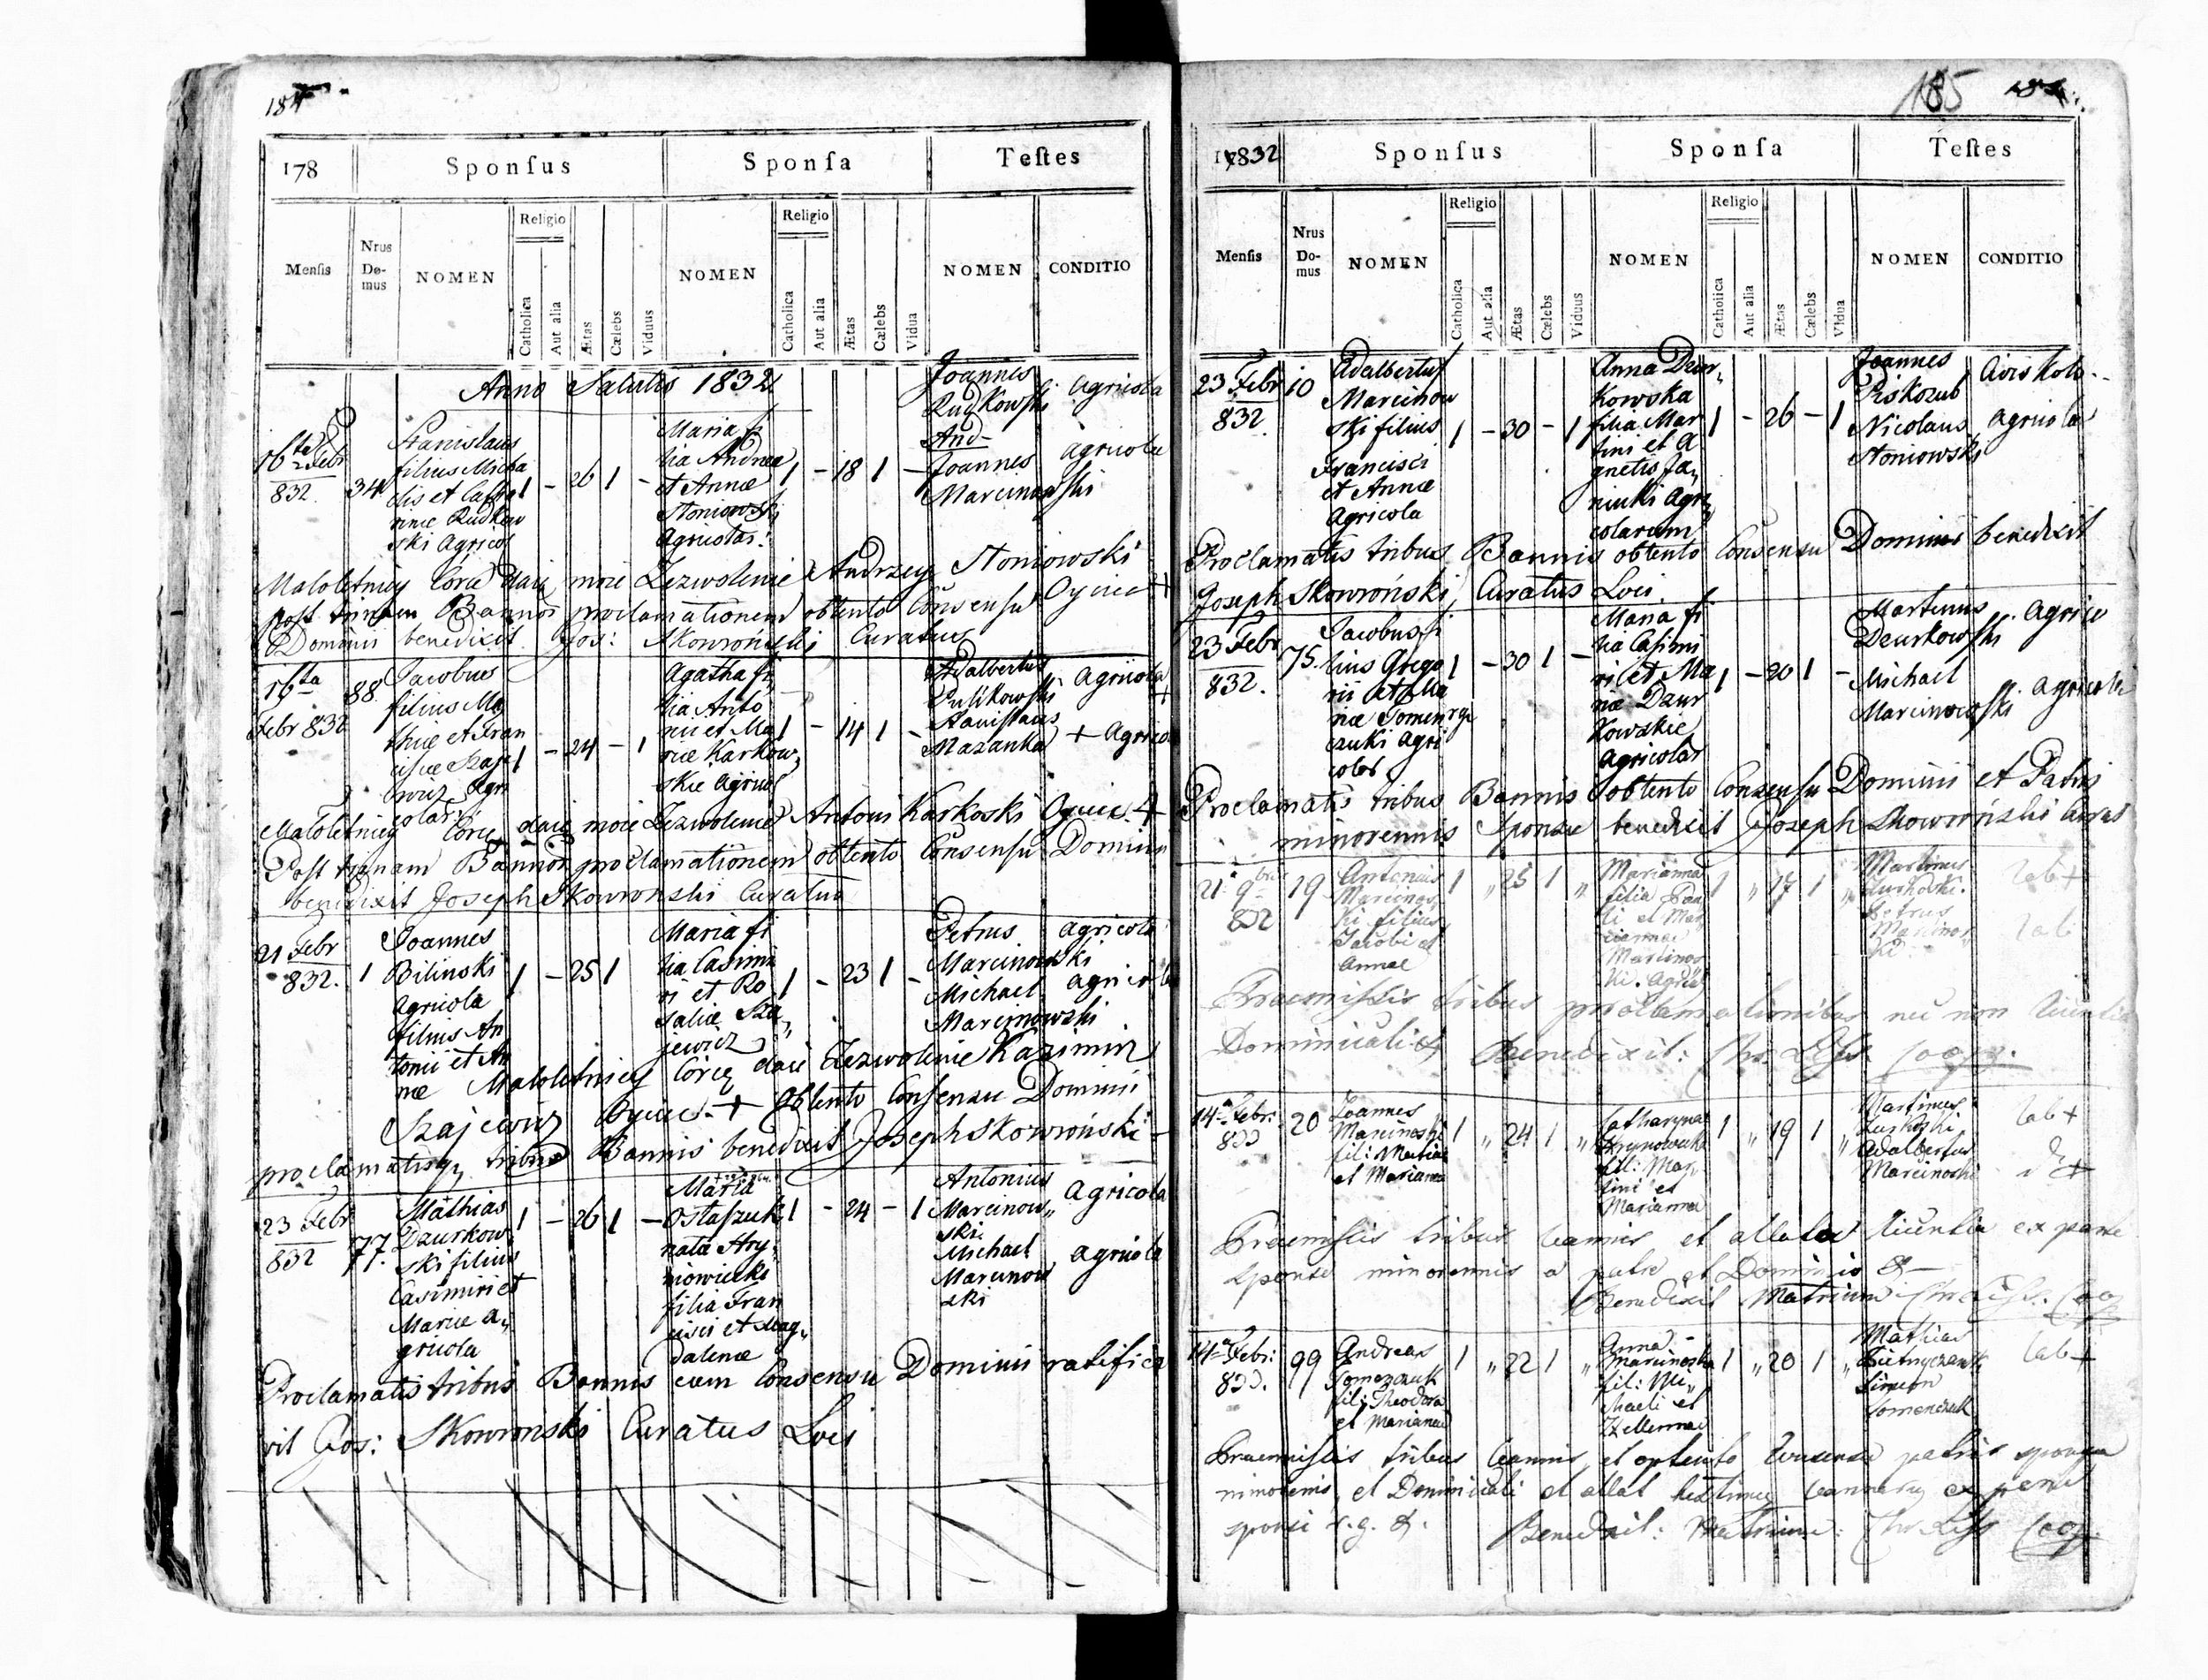 184
178
Sponſus
Sponſa
Teſtes
Menſis
Nrus Do-mus
NOMEN
Religio
Catholica
Aut alia
Ætas
Cælebs
Viduus
NOMEN
Religio
Catholica
Aut alia
Ætas
Cælebs
Vidua
NOMEN
CONDITIO
Anno Salutis 1832
16ta Febr
832.
34
Stanislaus
filius Micha
elis et
Rudkow
ski Agricol
1 - 26 1 -
Maria fi
lia Andreae
et Annae
Stoniowski
Agricolar:
1 - 18 1 -
Joannes
Rudkowski
And-
Joannes
Marcinowski
agricola
agricola
Maloletniey Córce daię moie Zezwolenie Andrzey Stoniowski
Oyciec +
post trinam Bannor proclamationem obtento Consensu
Dominii benedixit Jos: Skowroński Curatus
16ta
Febr 832
88
Jacobus
filius Ma
thiae et Fran
ciscae Szaje
wicz Agri
colar:
1 - 24 - 1
Agatha fi
lia Anto
nii et Ma
riae Karkow
skie Agricol
1 - 14 1 -
Adalbertus
Stanislaus
Mazanka
agricola
+
+ Agricol
Maloletniey Córcę daię moie Zezwolenie Antoni Karkoski Oyciec +
Post trinam Bannor proclamationem obtento Consensu Dominii
benedixit Joseph Skowronski Curatus
21 Febr
832.
1
Joannes
Bilinski
Agricola
filius An
tonii et An
nae
1 - 25 1
Maria fi
lia Casimi
ri et Ro
saliae Sza
jewicz
1 - 23 1 -
Petrus
Marcinowski
Michael
Marcinowski
agricola
agricola
Maloletniey Córcę daię Zezwolenie Kazimirz
Szajewicz Oyciec + Obtento Consensu Dominii
proclamatisq tribus Bannis benedixit Joseph Skowroński
23 Febr
832
77.
Mathias
Dzurkow
ski filius
Casimiri et
Mariae a
gricola
1 - 26 1 -
Maria
Ostaszuk
nata Hry
niowiecki
filia Fran
cisci et Mag
dalenae
1 - 24 - 1
Antonius
Marcinow
ski
Michael
Marcinow
ski
Agricola
agricola
Proclamatis tribus Bannis cum Consensu Dominii ratifica
vit Jos: Skowronski Curatus Loci
185
17832
Sponſus
Sponſa
Teſtes
Menſis
Nrus Do-mus
NOMEN
Religio
Catholica
Aut alia
Ætas
Cælebs
Viduus
NOMEN
Religio
Catholica
Aut alia
Ætas
Cælebs
Vidua
NOMEN
CONDITIO
23 Febr
832.
10
Adalbertus
Marcinow
ski filius
Francisci
et Annae
Agricola
1 - 30 - 1
Anna Dzur
kowska
filia Mar
tini et A
gnetis Ja
niuki Agri
colarum
1 - 26 - 1
Joannes
Piskozub
Nicolaus
Stoniowski
agricola
Proclamatis tribus Bannis obtento Consensu Dominii benedixit
Joseph Skowroński Curatus Loci.
23 Febr
832.
75.
Jacobus fi
lius Grego
rii et Ma
riae
czuki Agri
colar
1 - 30 1 -
Maria fi
lia Casimi
ri et Ma
riae Dzur
kowskie
Agricolar
1 - 20 1 -
Martinus
Dzurkowski
Michael
Marcinowski
agrico
agricola
Proclamatis tribus Bannis obtento Consensu Dominii et Patris
minorennis Sponsae benedixit Joseph Skowroński Curat
21 9bris
832
19
Antonius
Marcinos
ki filius
Jacobi et
Annae
1 „ 25 1 „
Marianna
filia Pau
li et Mar
iannae
Marcinos
ki. Agric
1 „ 17 1 „
Martinus
Petrus
Marcinos
ki
lab +
lab
Praemissis tribus proclamationibus nec non licentia
Dominicali &
Benedixit: Coop.
14a Febr:
833
20
Joannes
Marcinoski
fil: Mathiae
et Marianna
1 „ 24 1 „
Catharyna
fil: Mar
tini et
Marianna
1 „ 19 1 „
Martinus
Adalbertus
Marcinoski
lab +
d° +
Praemissis tribus bannis et allata licentia ex parte
sponsae minorennis a patre et Dominio &-
Benedixit Matrimn Coop
14a Febr:
833.
99
Andreas
Tomczczuk
fil: Theodora
et Mariannae
1 „ 22 1 „
Anna
Marcinoska
fil: Mi
chaeli et
1 „ 20 1 „
Mathias
Simeon
lab +
Praemissis tribus bannis et optento Consensu patris sponsa
minorenis, et Dominicali et allat bannorum ex parte
sponsi r. g. &.
Benedixit: Matrimn: Coop